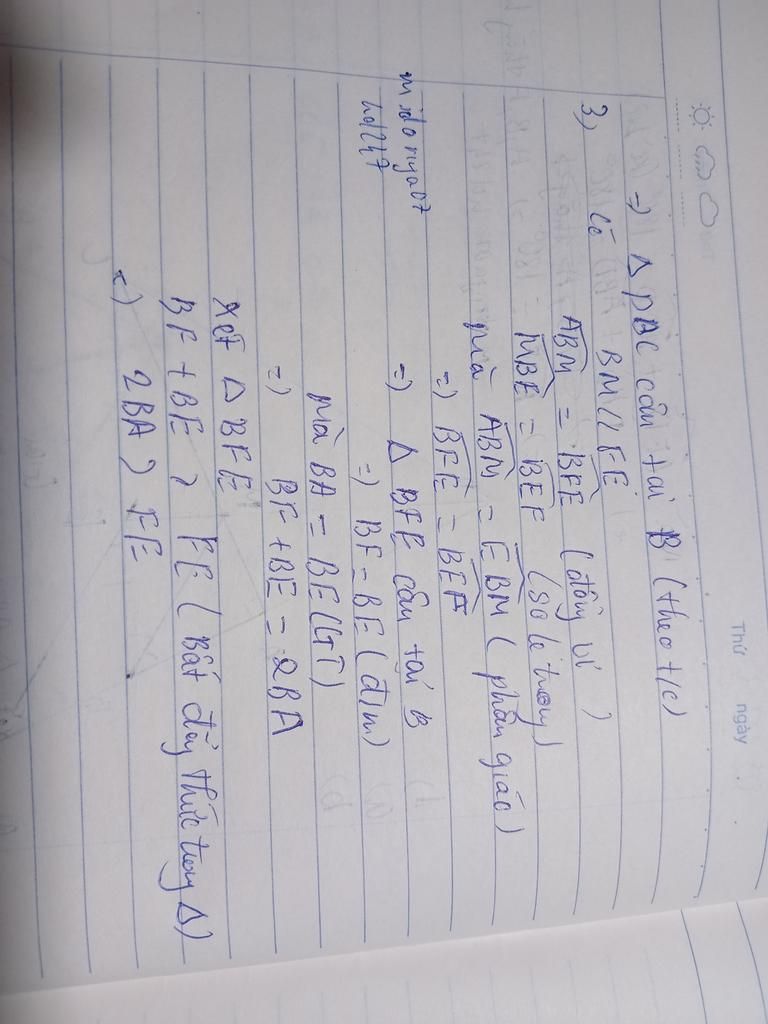 Thứ ngày
=) Δ PBC cân tại B (theo t/c)
3) Có BM // FE
ABM = BFE (đồng vị)
MBE = BEF (so le trong)
mà ABM = EBM (phân giác)
=) BFE = BEF
=) Δ BFE cân tại B
=) BF = BE (đ/n)
mà BA = BE (GT)
=) BF + BE = 2BA
Xét Δ BFE
BF + BE > FE (Bất đẳng thức trong Δ)
=) 2BA > FE
hd247